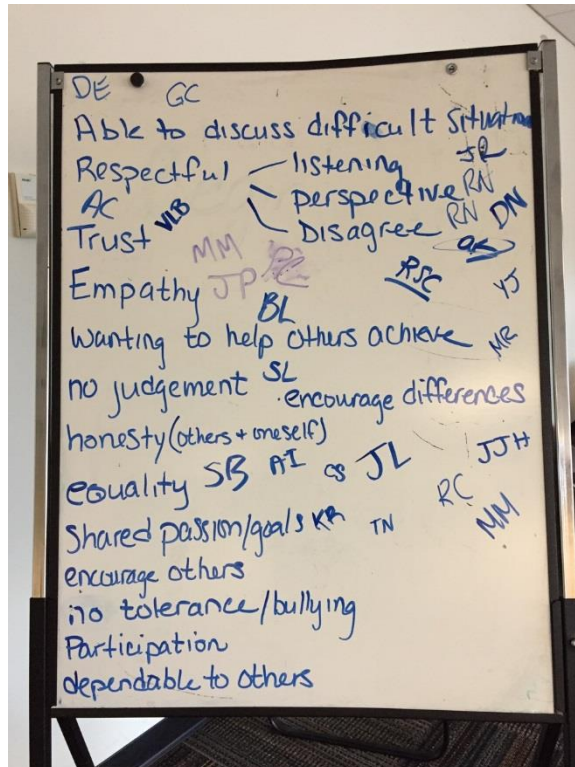 DE GC
Able to discuss difficult situation
JR
Respectful listening
perspective RN
AC VLB RN DN
Trust Disagree
MM
JP RSC YJ
Empathy
BL
Wanting to help others achieve MR
no judgement SL
. encourage differences
honesty (others + oneself)
equality SB AI CS JL JJH
RC
Shared passion/goals KR TN MM
encourage others
no tolerance/bullying
Participation
dependable to others